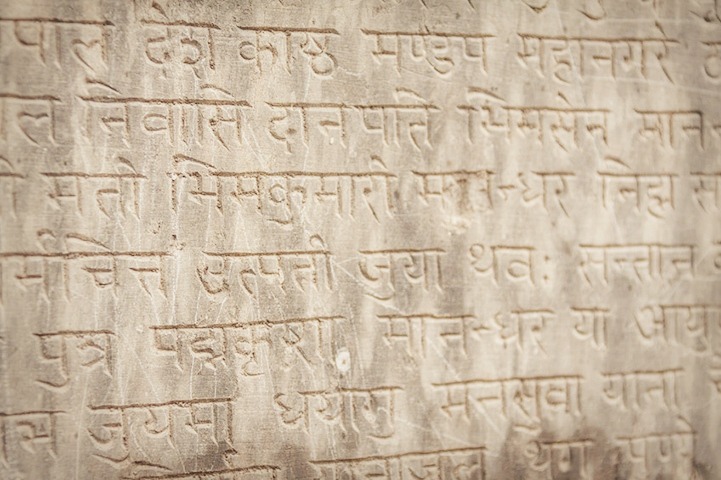 पाल देश काष्ठ मण्डप महानगरे
ल निवासि दानपति भिमसेन मान
मती भिमकुमारी मानन्धर निह्म
र्मचित्त उत्पती जुया थवः सन्तान
पुत्र पद्मकृश मानन्धर या आयु
जुयमा धयागु मनसुवा याना
थन